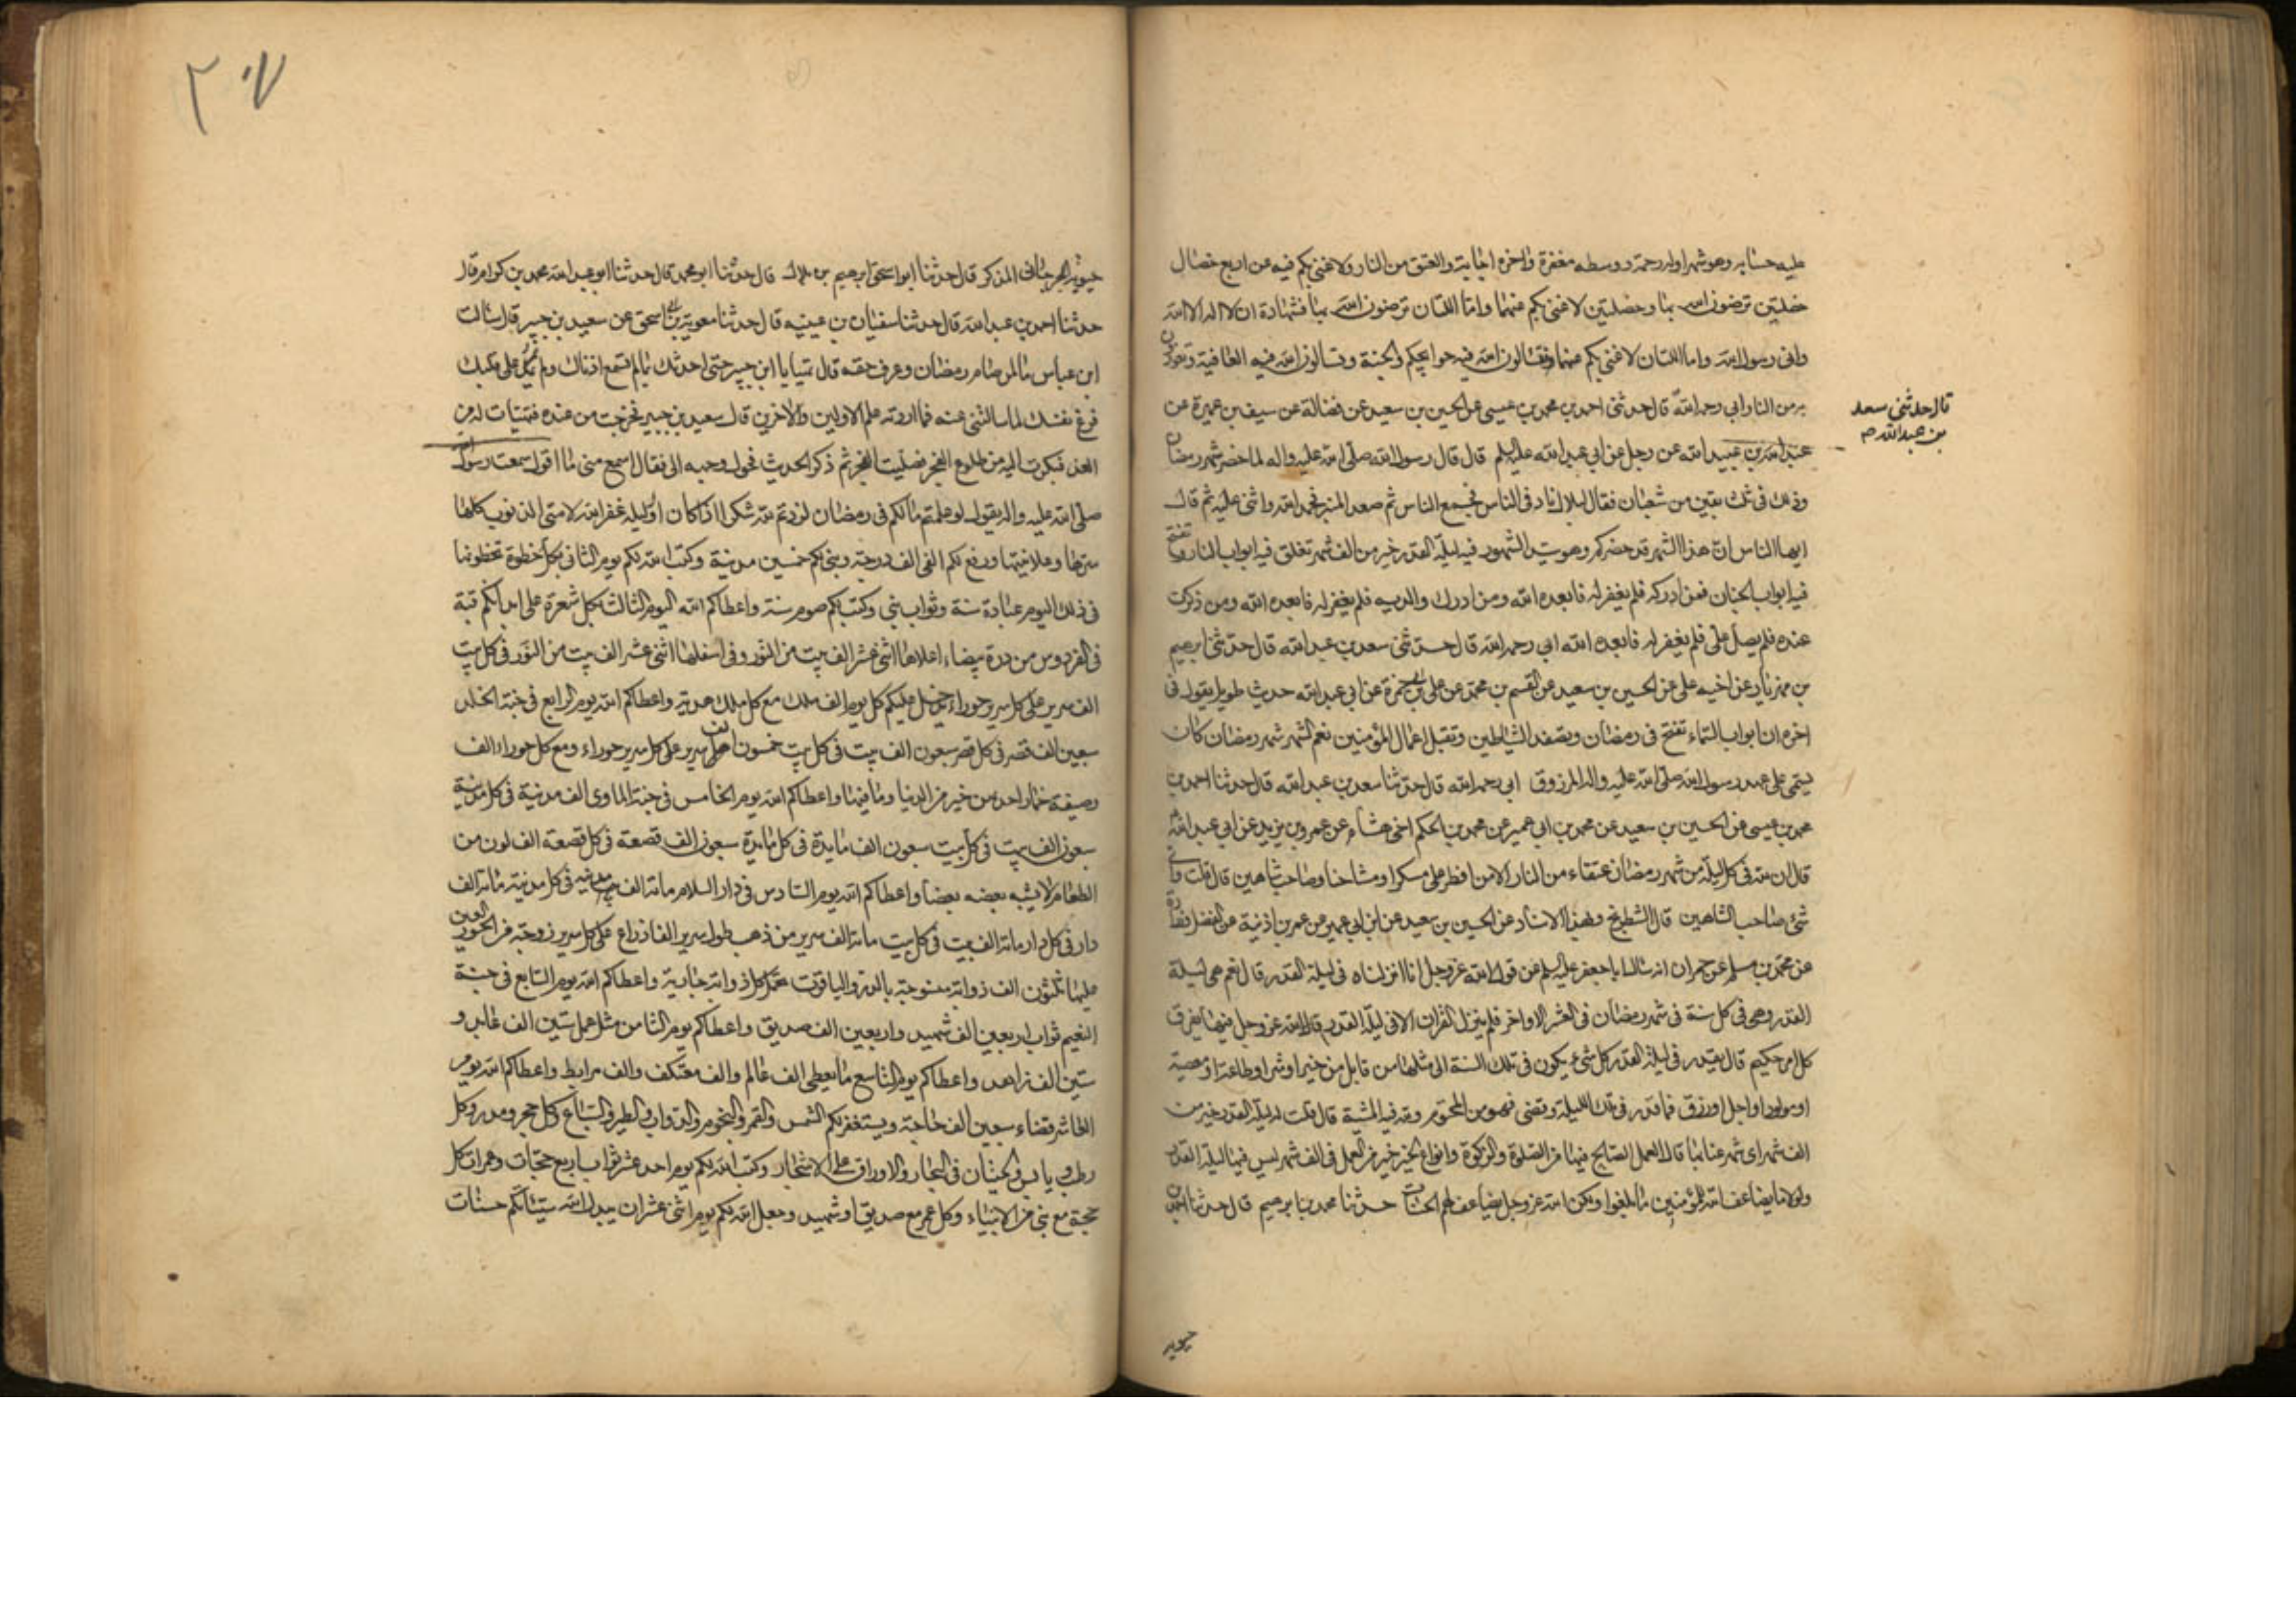 عليه حسابه وهو شهر اوله رحمة ووسطه مغفرة واخره اجابة والعتق من النار ولا غنى بكم فيه عن اربع خصال
خصلتين ترضون الله بها وخصلتين لا غنى بكم عنهما واما اللتان ترضون الله بها فشهادة ان لا اله الا الله
واني رسول الله واما اللتان لا غنى بكم عنهما فتسالون الله فيه حوايجكم والجنة وتسالون الله فيه العافية وتعوذون
به من النار ابي رحمه الله قال حدثني احمد بن محمد بن عيسى عن الحسين بن سعيد عن فضالة عن سيف بن عميرة عن
قال حدثني سعد
بن عبد الله صح
عبد الله بن عبيد الله عن رجل عن ابي عبد الله عليه السلم قال قال رسول الله صلى الله عليه واله لما حضر شهر رمضان
وذلك في ثلث بقين من شعبان فقال لبلال ناد في الناس فجمع الناس ثم صعد المنبر فحمد الله واثنى عليه ثم قال
ايها الناس ان هذا الشهر قد حضركم وهو سيد الشهور فيه ليلة القدر خير من الف شهر تغلق فيه ابواب النار وتفتح
فيه ابواب الجنان فمن ادركه فلم يغفر له فابعده الله ومن ادرك والديه فلم يغفر له فابعده الله ومن ذكرت
عنده فلم يصل علي فلم يغفر له فابعده الله ابي رحمه الله قال حدثني سعد بن عبد الله قال حدثني ابرهيم
بن مهزيار عن اخيه علي عن الحسين بن سعيد عن القسم بن محمد عن علي بن ابي حمزة عن ابي عبد الله حديث طويل يقول في
اخره ان ابواب السماء تفتح في رمضان وتصفد الشياطين وتقبل اعمال المؤمنين نعم الشهر شهر رمضان كان
يسمى على عهد رسول الله صلى الله عليه واله المرزوق ابي رحمه الله قال حدثنا سعد بن عبد الله قال حدثنا احمد بن
محمد بن عيسى عن الحسين بن سعيد عن محمد بن ابي عمير عن محمد بن الحكم اخي هشام عن عمرو بن يزيد عن ابي عبد الله
قال ان لله في كل ليلة من شهر رمضان عتقاء من النار الا من افطر على مسكر او مشاحنا وصاحب شاهين قال قلت واي
شئ صاحب الشاهين قال الشطرنج وبهذا الاسناد عن الحسين بن سعيد عن ابن ابي عمير عن عمر بن اذنية عن الفضل
عن محمد بن مسلم عن حمران انه سال ابا جعفر عليه السلم عن قول الله عز وجل انا انزلناه في ليلة القدر قال نعم هي ليلة
القدر وهي في كل سنة في شهر رمضان في العشر الاواخر فلم ينزل القران الا في ليلة القدر قال الله عز وجل فيها يفرق
كل امر حكيم قال يقدر في ليلة القدر كل شئ يكون في تلك السنة الى مثلها من قابل من خير او شر او طاعة او معصية
او مولود او اجل او رزق فما قدر في تلك الليلة وقضى فهو من المحتوم ولله فيه المشية قال قلت له ليلة القدر خير من
الف شهر اي شهر عنا بها قال العمل الصالح فيها من الصلوة والزكوة وانواع الخير خير من العمل في الف شهر ليس فيها ليلة القدر
ولولا ما يضاعف الله للمؤمنين ما بلغوا ولكن الله عز وجل يضاعف لهم الحسنات حدثنا محمد بن ابرهيم قال حدثنا
الجرجاني المذكر قال حدثنا ابو اسحق ابرهيم بن بلال قال حدثنا ابو محمد قال حدثنا ابو عبد الله محمد بن كرام قال
حدثنا احمد بن عبد الله قال حدثنا سفيان بن عيينه قال حدثنا معوية بن ابي اسحق عن سعيد بن جبير قال سالت
ابن عباس ما لمن صام رمضان وعرف حقه قال تهيا يا ابن جبير حتى احدثك بما لم تسمع اذناك ولم يمر على قلبك
فرغ نفسك لما سالتني عنه فما اردته علم الاولين والاخرين قال سعيد بن جبير فخرجت من عنده فتهيات له من
الغد فبكرت اليه من طلوع الفجر فصليت الفجر ثم ذكر الحديث فحول وجهه الي فقال اسمع مني ما اقول سمعت رسول الله
صلى الله عليه واله يقول لو علمتم ما لكم في رمضان لزدتم لله شكرا اذا كان اول ليلة غفر الله لامتي الذنوب كلها
سرها وعلانيتها ورفع لكم الفي الف درجة وبنى لكم خمسين مدينة وكتب الله لكم يوم الثاني بكل خطوة تخطونها
في ذلك اليوم عبادة سنة وثواب نبي وكتب لكم صوم سنة واعطاكم الله اليوم الثالث بكل شعرة على ابدانكم قبة
في الفردوس من درة بيضاء اعلاها اثنى عشر الف بيت من النور وفي اسفلها اثنى عشر الف بيت من النور في كل بيت
الف سرير على كل سرير حوراء يدخل عليكم كل يوم الف ملك مع كل ملك هدية واعطاكم الله يوم الرابع في جنة الخلد
سبعين الف قصر في كل قصر سبعون الف بيت في كل بيت خمسون الف سرير على كل سرير حوراء ومع كل حوراء الف
وصيفة خمار احدهن خير من الدنيا وما فيها واعطاكم الله يوم الخامس في جنة الماوى الف مدينة في كل مدينة
سبعون الف بيت في كل بيت سبعون الف مايدة في كل مايدة سبعون الف قصعة في كل قصعة الف لون من
الطعام لا يشبه بعضه بعضا واعطاكم الله يوم السادس في دار السلام مائة الف مدينة في كل مدينة مائة الف
دار في كل دار مائة الف بيت في كل بيت مائة الف سرير من ذهب طول سرير الف ذراع على كل سرير زوجة من الحور العين
عليها ثلثون الف ذوابة منسوجة بالدر والياقوت تحمل كل ذوابة جارية واعطاكم الله يوم السابع في جنة
النعيم ثواب اربعين الف شهيد واربعين الف صديق واعطاكم يوم الثامن مثل عمل ستين الف عابد و
ستين الف زاهد واعطاكم يوم التاسع ما يعطى الف عالم والف معتكف والف مرابط واعطاكم الله يوم
العاشر قضاء سبعين الف حاجة ويستغفر لكم الشمس والقمر والنجوم والدواب والطير والسباع وكل حجر ومدر وكل
رطب ويابس والحيتان في البحار والاوراق على الاشجار وكتب الله لكم يوم احد عشر ثواب اربع حجات وعمرات كل
حجة مع نبي من الانبياء وكل عمرة مع صديق او شهيد وجعل الله لكم يوم اثنى عشر ان يبدل الله سيئاتكم حسنات